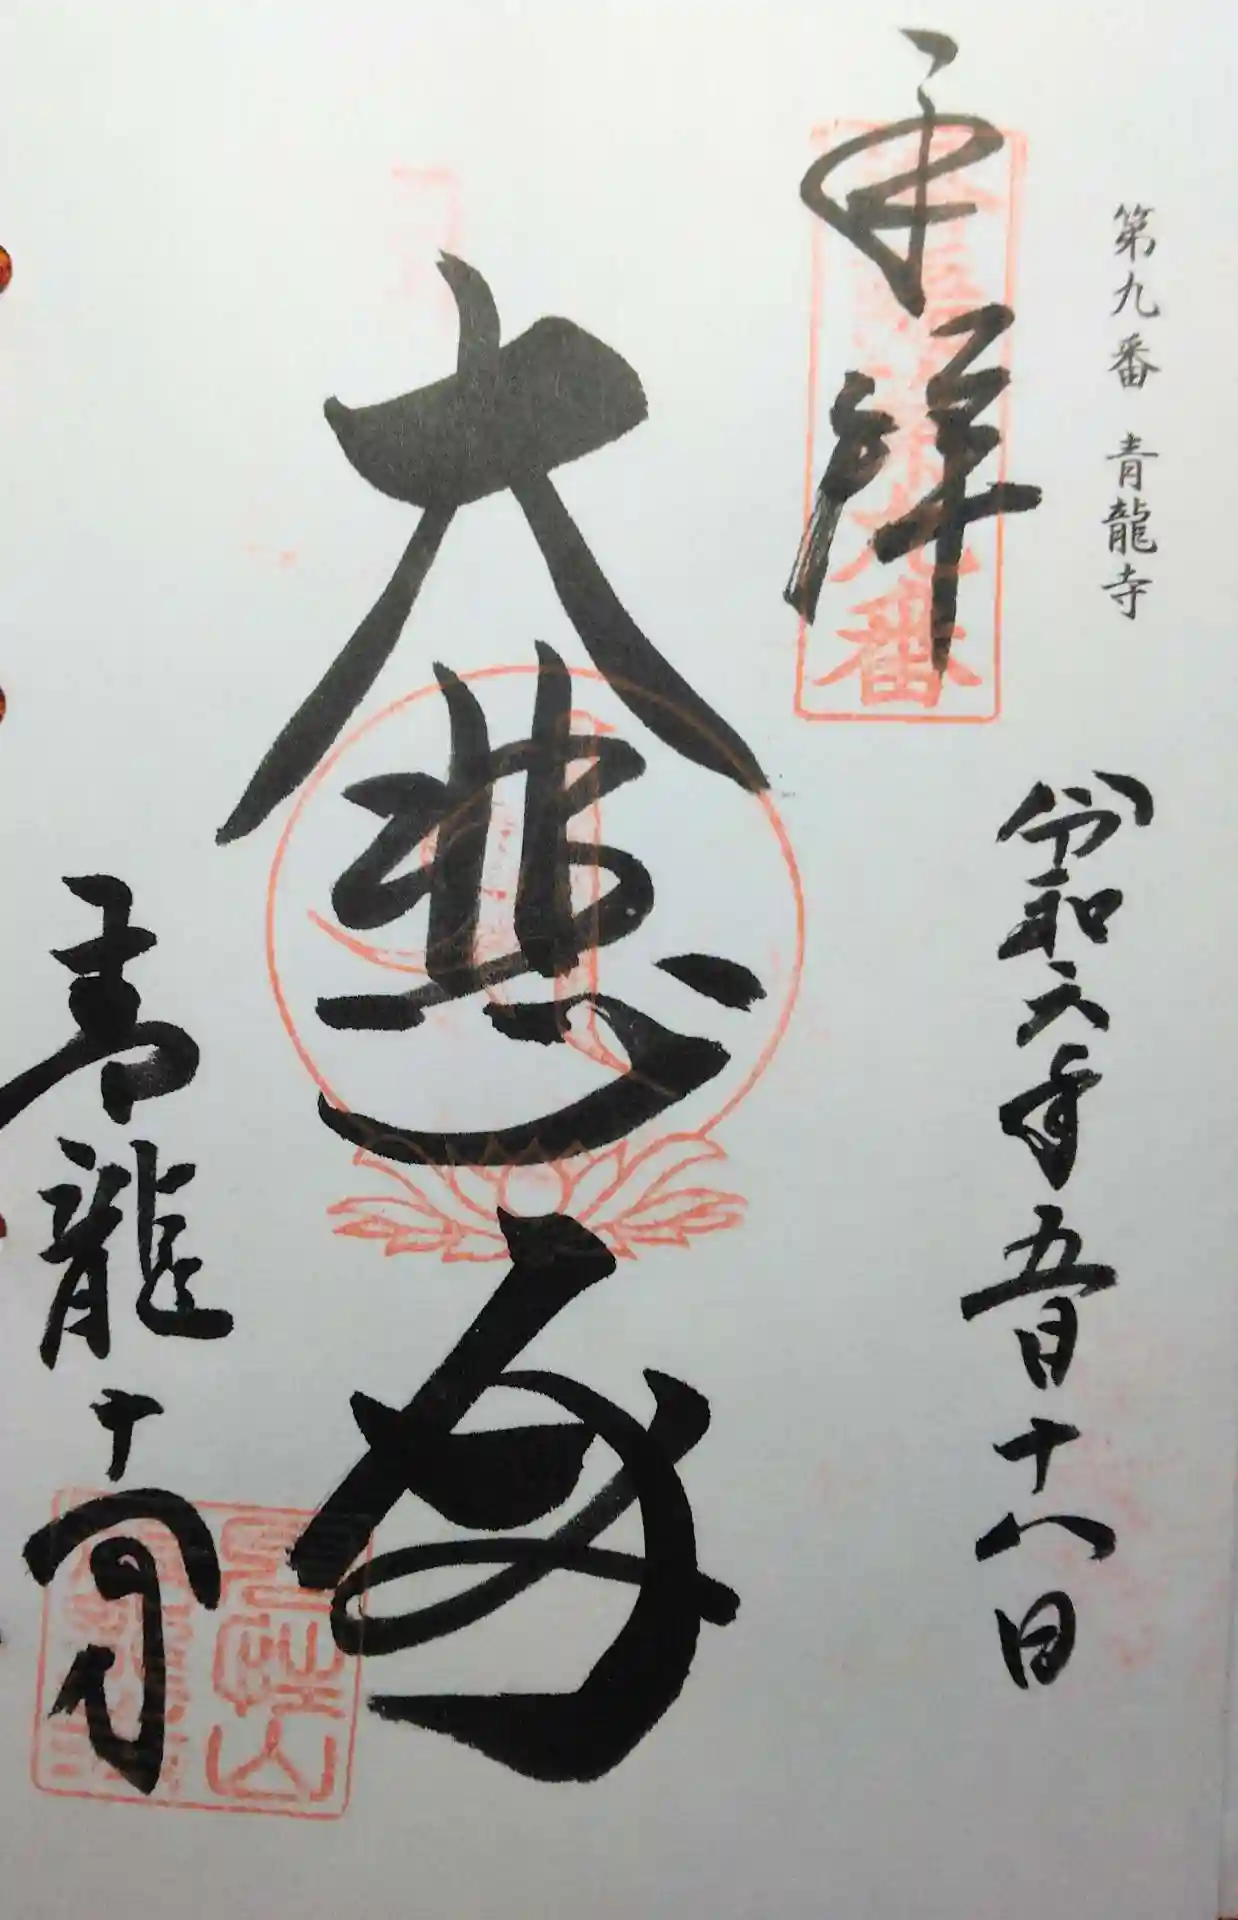 第九番 青龍寺
奉拝
令和六年五月十八日
大悲殿
青龍寺
九番
山